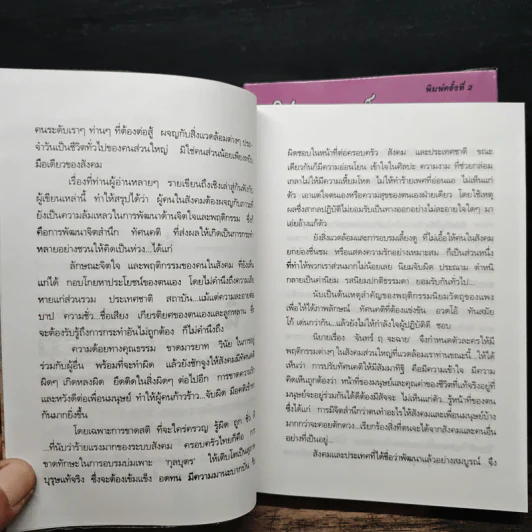 พิมพ์ครั้งที่ 2
คนระดับเราๆ ท่านๆ ที่ต้องต่อสู้ ผจญกับสิ่งแวดล้อมต่างๆ
จำวันเป็นชีวิตทั่วไปของคนส่วนใหญ่ มิใช่คนส่วนน้อยเพียง
มือเดียวของสังคม
เรื่องที่ท่านผู้อ่านหลายๆ รายเขียนถึงเชิงเล่าสู่กันฟัง
ผู้เขียนเหล่านี้ ทำให้สรุปได้ว่า ผู้คนในสังคมต้องผจญกับ
ยังเป็นความล้มเหลวในการพัฒนาด้านจิตใจและพฤติกรรม
คือการพัฒนาจิตสำนึก ทัศนคติ ที่ส่งผลให้เกิดเป็นการ
หลายอย่างชวนให้คิดเป็นห่วง...ได้แก่
ลักษณะจิตใจ และพฤติกรรมของคนในสังคม ที่ยัง
แก่ได้ กอบโกยหาประโยชน์ของตนเอง โดยไม่คำนึงถึงความ
หายแก่ส่วนรวม ประเทศชาติ สถาบัน...แม้แต่ความละอาย
บาป ความชั่ว..ชื่อเสียง เกียรติยศของตนเองและลูกหลาน
จะต้องรับรู้ถึงการกระทำอันไม่ถูกต้อง ก็ไม่คำนึงถึง
ความด้อยทางคุณธรรม ขาดมารยาท วินัย ในการอยู่
ร่วมกับผู้อื่น พร้อมที่จะทำผิด แล้วยังชักจูงให้สังคมมีทัศนคติ
ผิดๆ เกิดหลงผิด ยึดติดในสิ่งผิดๆ ต่อไปอีก การขาดความรัก
และหวังดีต่อเพื่อนมนุษย์ ทำให้ผู้คนก้าวร้าว...จับผิด มีอคติ
กันมากยิ่งขึ้น
โดยเฉพาะการขาดสติ ที่จะใคร่ครวญ รู้ผิด ถูก ชั่ว ดี
...ที่นับว่าร้ายแรงมากของระบบสังคม ครอบครัวไทยก็คือ การ
ขาดทักษะในการอบรมบ่มเพาะ 'กุลบุตร' ให้เติบโตเป็นลูก
บุรุษแท้จริง ซึ่งจะต้องเข้มแข็ง อดทน มีความมานะบากบั่น
ผิดชอบในหน้าที่ต่อครอบครัว สังคม และประเทศชาติ ขณะ
เดียวกันก็มีความอ่อนโยน เข้าใจในศิลปะ ความงาม ที่ช่วยกล่อม
เกลาไม่ให้มีความเหี้ยมโหด ไม่ให้ทำร้ายเพศที่อ่อนแอ ไม่เห็นแก่
ตัว เอาแต่ใจตนเองหรือความสุขของตนเองฝ่ายเดียว โดยใช้เหตุ
ผลซึ่งสากลปฏิบัติไม่ยอมรับเป็นทางออกอย่างไม่ละอายใจใดๆ มา
เอ่ยอ้างแก้ตัว
ยังสิ่งแวดล้อมและการอบรมเลี้ยงดู ที่ไม่เอื้อให้คนในสังคม
ยกย่องชื่นชม หรือแสดงความรักอย่างเหมาะสม ก็เป็นส่วนหนึ่ง
ที่ทำให้พวกเราส่วนมากไม่น้อยเลย นิยมจับผิด ประณาม ตำหนิ
กลายเป็นค่านิยม รสนิยมปกติธรรมดา ยอมรับกันทั่วไป...
นับเป็นต้นเหตุสำคัญของพฤติกรรมนิยมวัตถุของแพง
เพื่อให้ได้ภาพลักษณ์ ทัศนคติที่ต้องแข่งขัน อวดโอ้ ทันสมัย
โก้ เด่นกว่ากัน...แล้วยังไม่ให้กำลังใจผู้ปฏิบัติดี ชอบ
นิยายเรื่อง จันทร์ ฤ จะฉาย' จึงกำหนดตัวละครให้มี
พฤติกรรมต่างๆ ในสังคมส่วนใหญ่ที่แวดล้อมเราท่านขณะนี้...ให้ได้
เห็นว่า การปรับทัศนคติให้มีสัมมาทิฐิ คือมีความเข้าใจ มีความ
คิดเห็นถูกต้องว่า หน้าที่ของมนุษย์และคุณค่าของชีวิตที่แท้จริงอยู่ที่
มนุษย์จะอยู่ร่วมกันได้ดีต้องมีสัจจะ ไม่เห็นแก่ตัว..รู้หน้าที่ของตน
ซึ่งได้แก่ การมีจิตสำนึกว่าตนทำอะไรให้สังคมและเพื่อนมนุษย์บ้าง
มากกว่าจะคอยคิดทวง..เรียกร้องสิ่งที่ตนจะได้จากสังคมและคนอื่น
อย่างที่เป็นอยู่...
สังคมและประเทศที่ได้ชื่อว่าพัฒนาแล้วอย่างสมบูรณ์ จึง